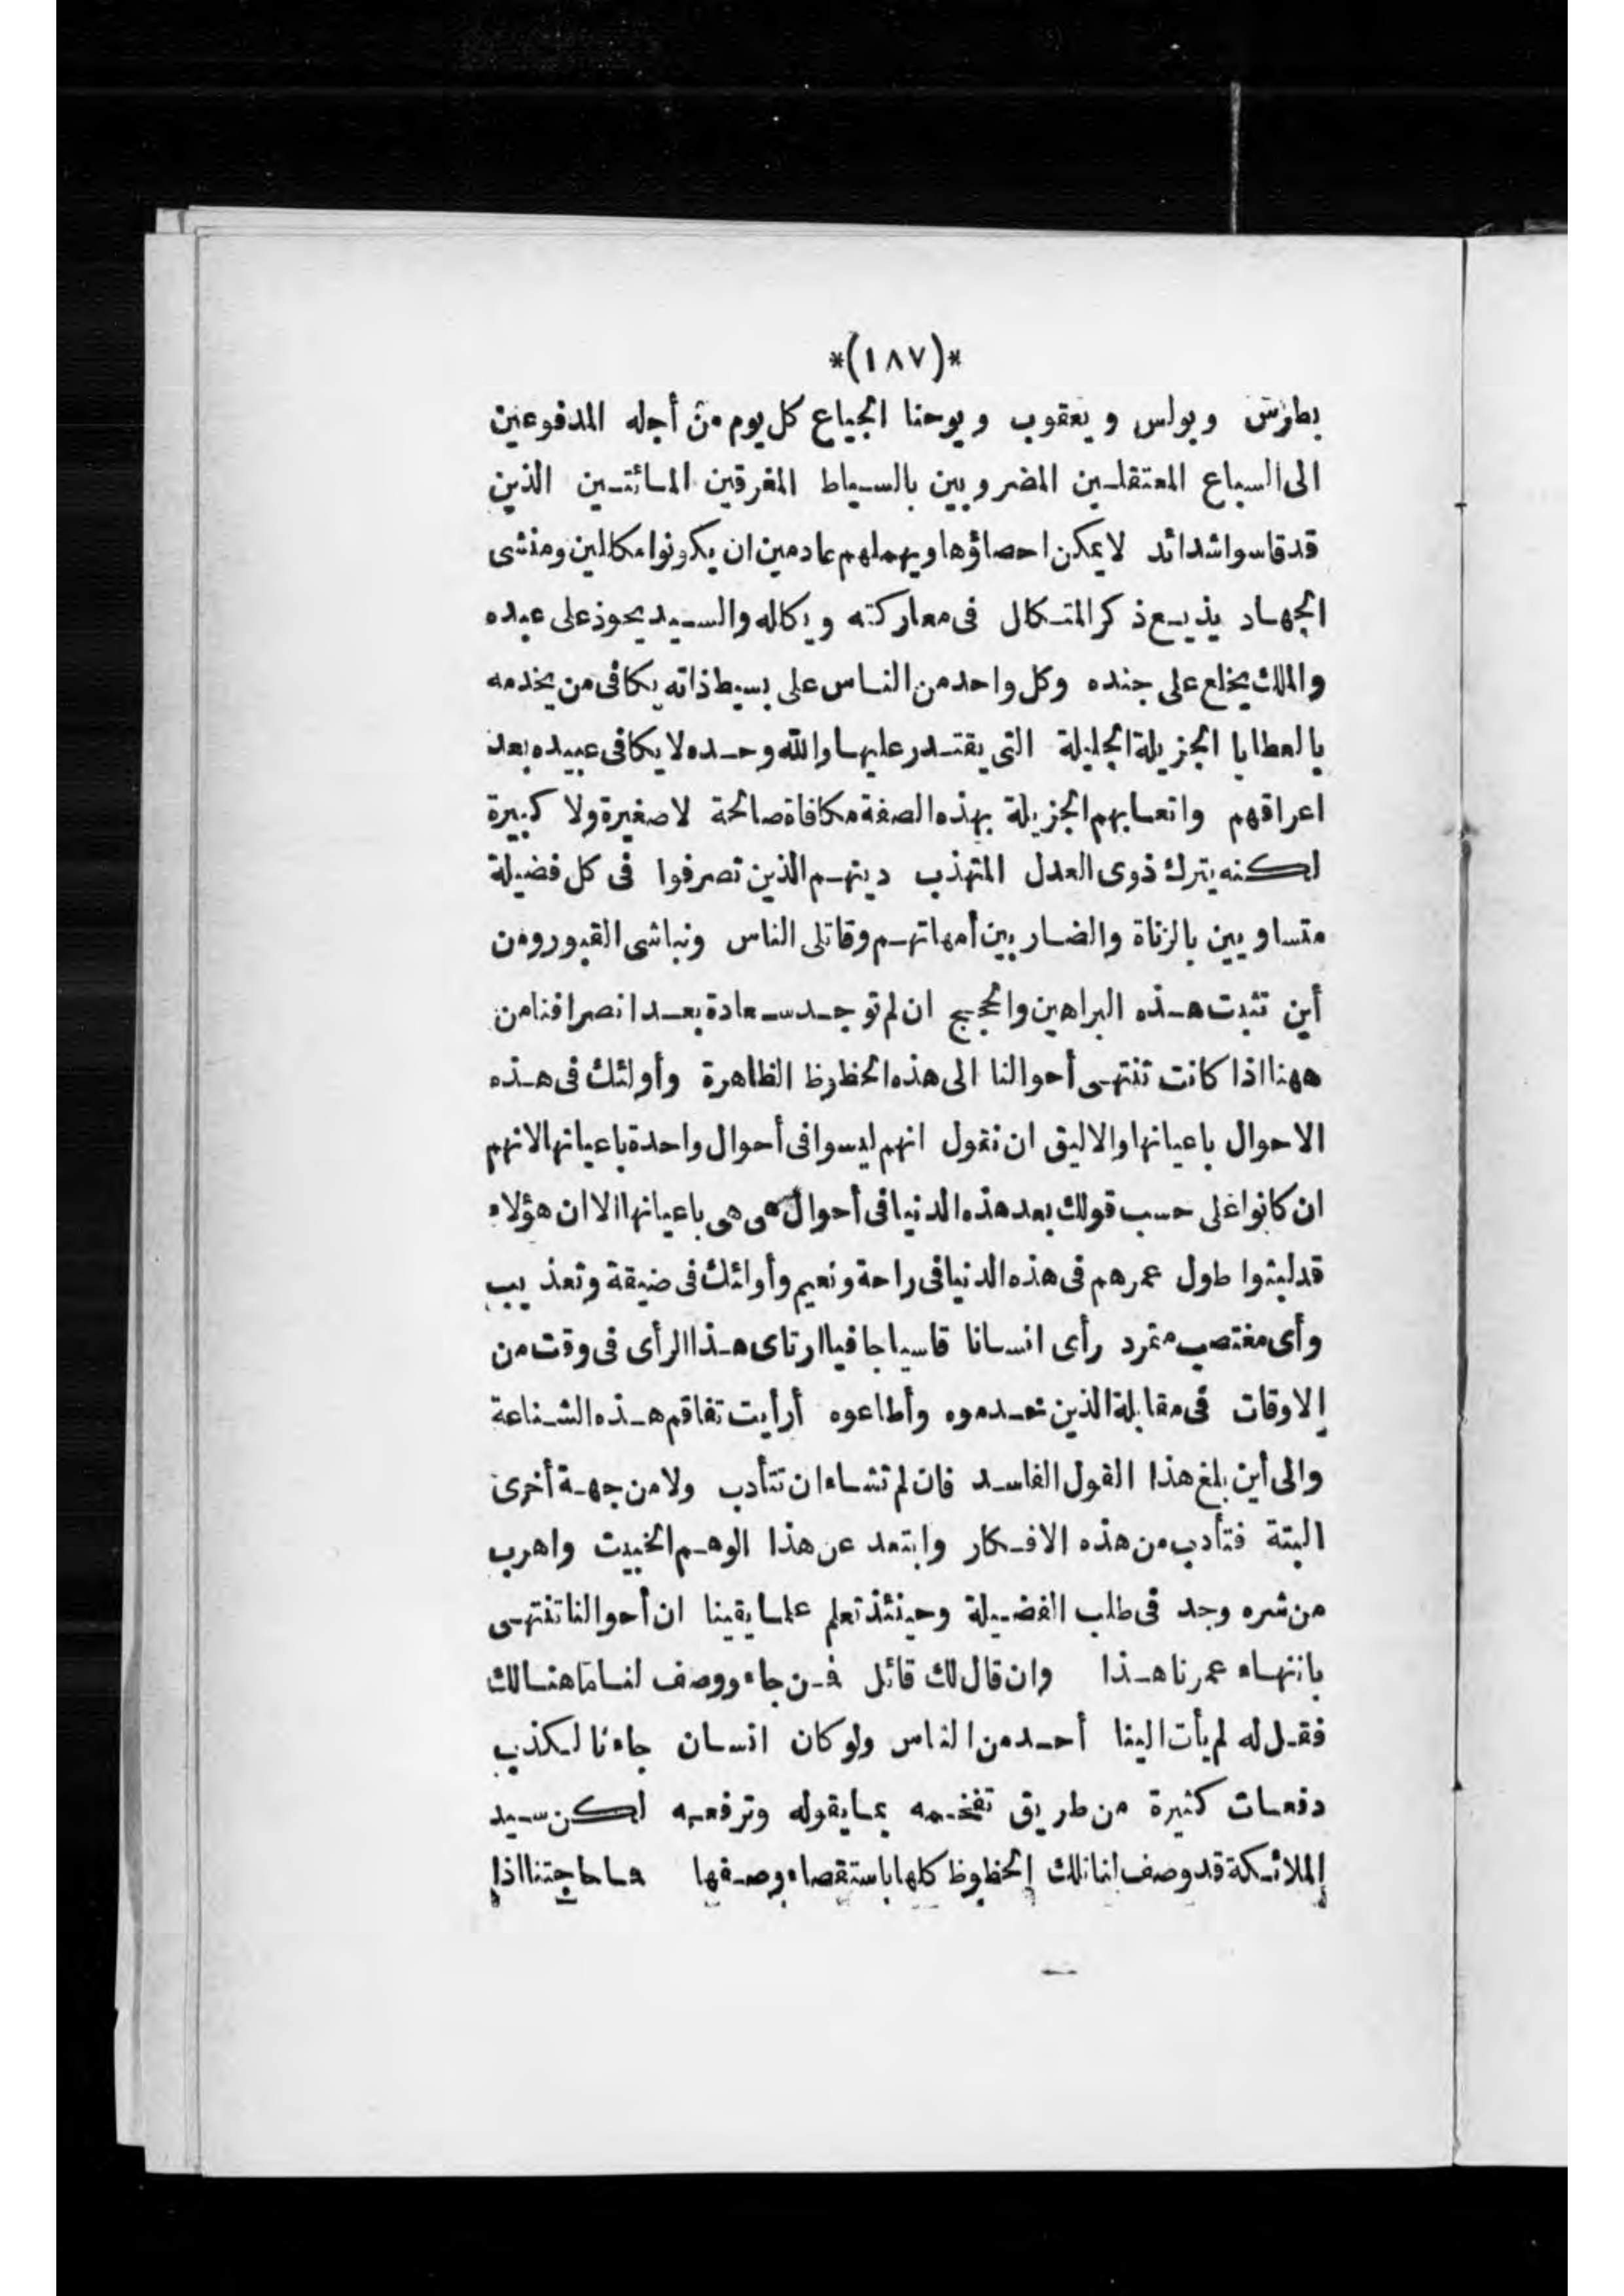 *(١٨٧)*
بطرس وبولس ويعقوب ويوحنا الجياع كل يوم من أجله المدفوعين
الى السباع المعتقلين المضروبين بالسياط المغرقين المائتين الذين
قد قاسوا شدائد لا يمكن احصاؤها ويهملهم عادمين ان يكونوا مكالين ومنشى
الجهاد يذيع ذكر المتكال فى معاركته ويكاله والسيد يحوذ على عبده
والملك يخلع على جنده وكل واحد من الناس على بسيط ذاته يكافى من يخدمه
بالعطايا الجزيلة الجليلة التى يقتدر عليها والله وحده لا يكافى عبيده بعد
اعراقهم واتعابهم الجزيلة بهذه الصفة مكافاة صالحة لا صغيرة ولا كبيرة
لكنه يترك ذوى العدل المتهذب دينهم الذين تصرفوا فى كل فضيلة
متساويين بالزناة والضاربين أمهاتهم وقاتلى الناس ونباشى القبور ومن
أين تثبت هذه البراهين والحجج ان لم توجد سعادة بعد انصرافنا من
ههنا اذا كانت تنتهى أحوالنا الى هذه الحظوظ الظاهرة وأولئك فى هذه
الاحوال باعيانها والاليق ان نقول انهم ليسوا فى أحوال واحدة باعيانها لانهم
ان كانوا على حسب قولك بعد هذه الدنيا فى أحوال هى هى باعيانها الا ان هؤلاء
قد لبثوا طول عمرهم فى هذه الدنيا فى راحة ونعيم وأولئك فى ضيقة وتعذيب
وأى مغتصب متمرد رأى انسانا قاسيا جافيا ارتاى هذا الرأى فى وقت من
الاوقات فى مقابلة الذين خدموه وأطاعوه أرأيت تفاقم هذه الشناعة
والى أين بلغ هذا القول الفاسد فان لم تشاء ان تتأدب ولا من جهة أخرى
البتة فتأدب من هذه الافكار وابتعد عن هذا الوهم الخبيث واهرب
من شره وجد فى طلب الفضيلة وحينئذ تعلم علما يقينا ان أحوالنا تنتهى
بانتهاء عمرنا هذا وان قال لك قائل فمن جاء ووصف لنا ما هنالك
فقل له لم يأت الينا أحد من الناس ولو كان انسان جاءنا لكذب
دفعات كثيرة من طريق تفخيمه بما يقوله وترفعه لكن سيد
الملائكة قد وصف لنا تلك الحظوظ كلها باستقصاء وصفها فما حاجتنا اذا